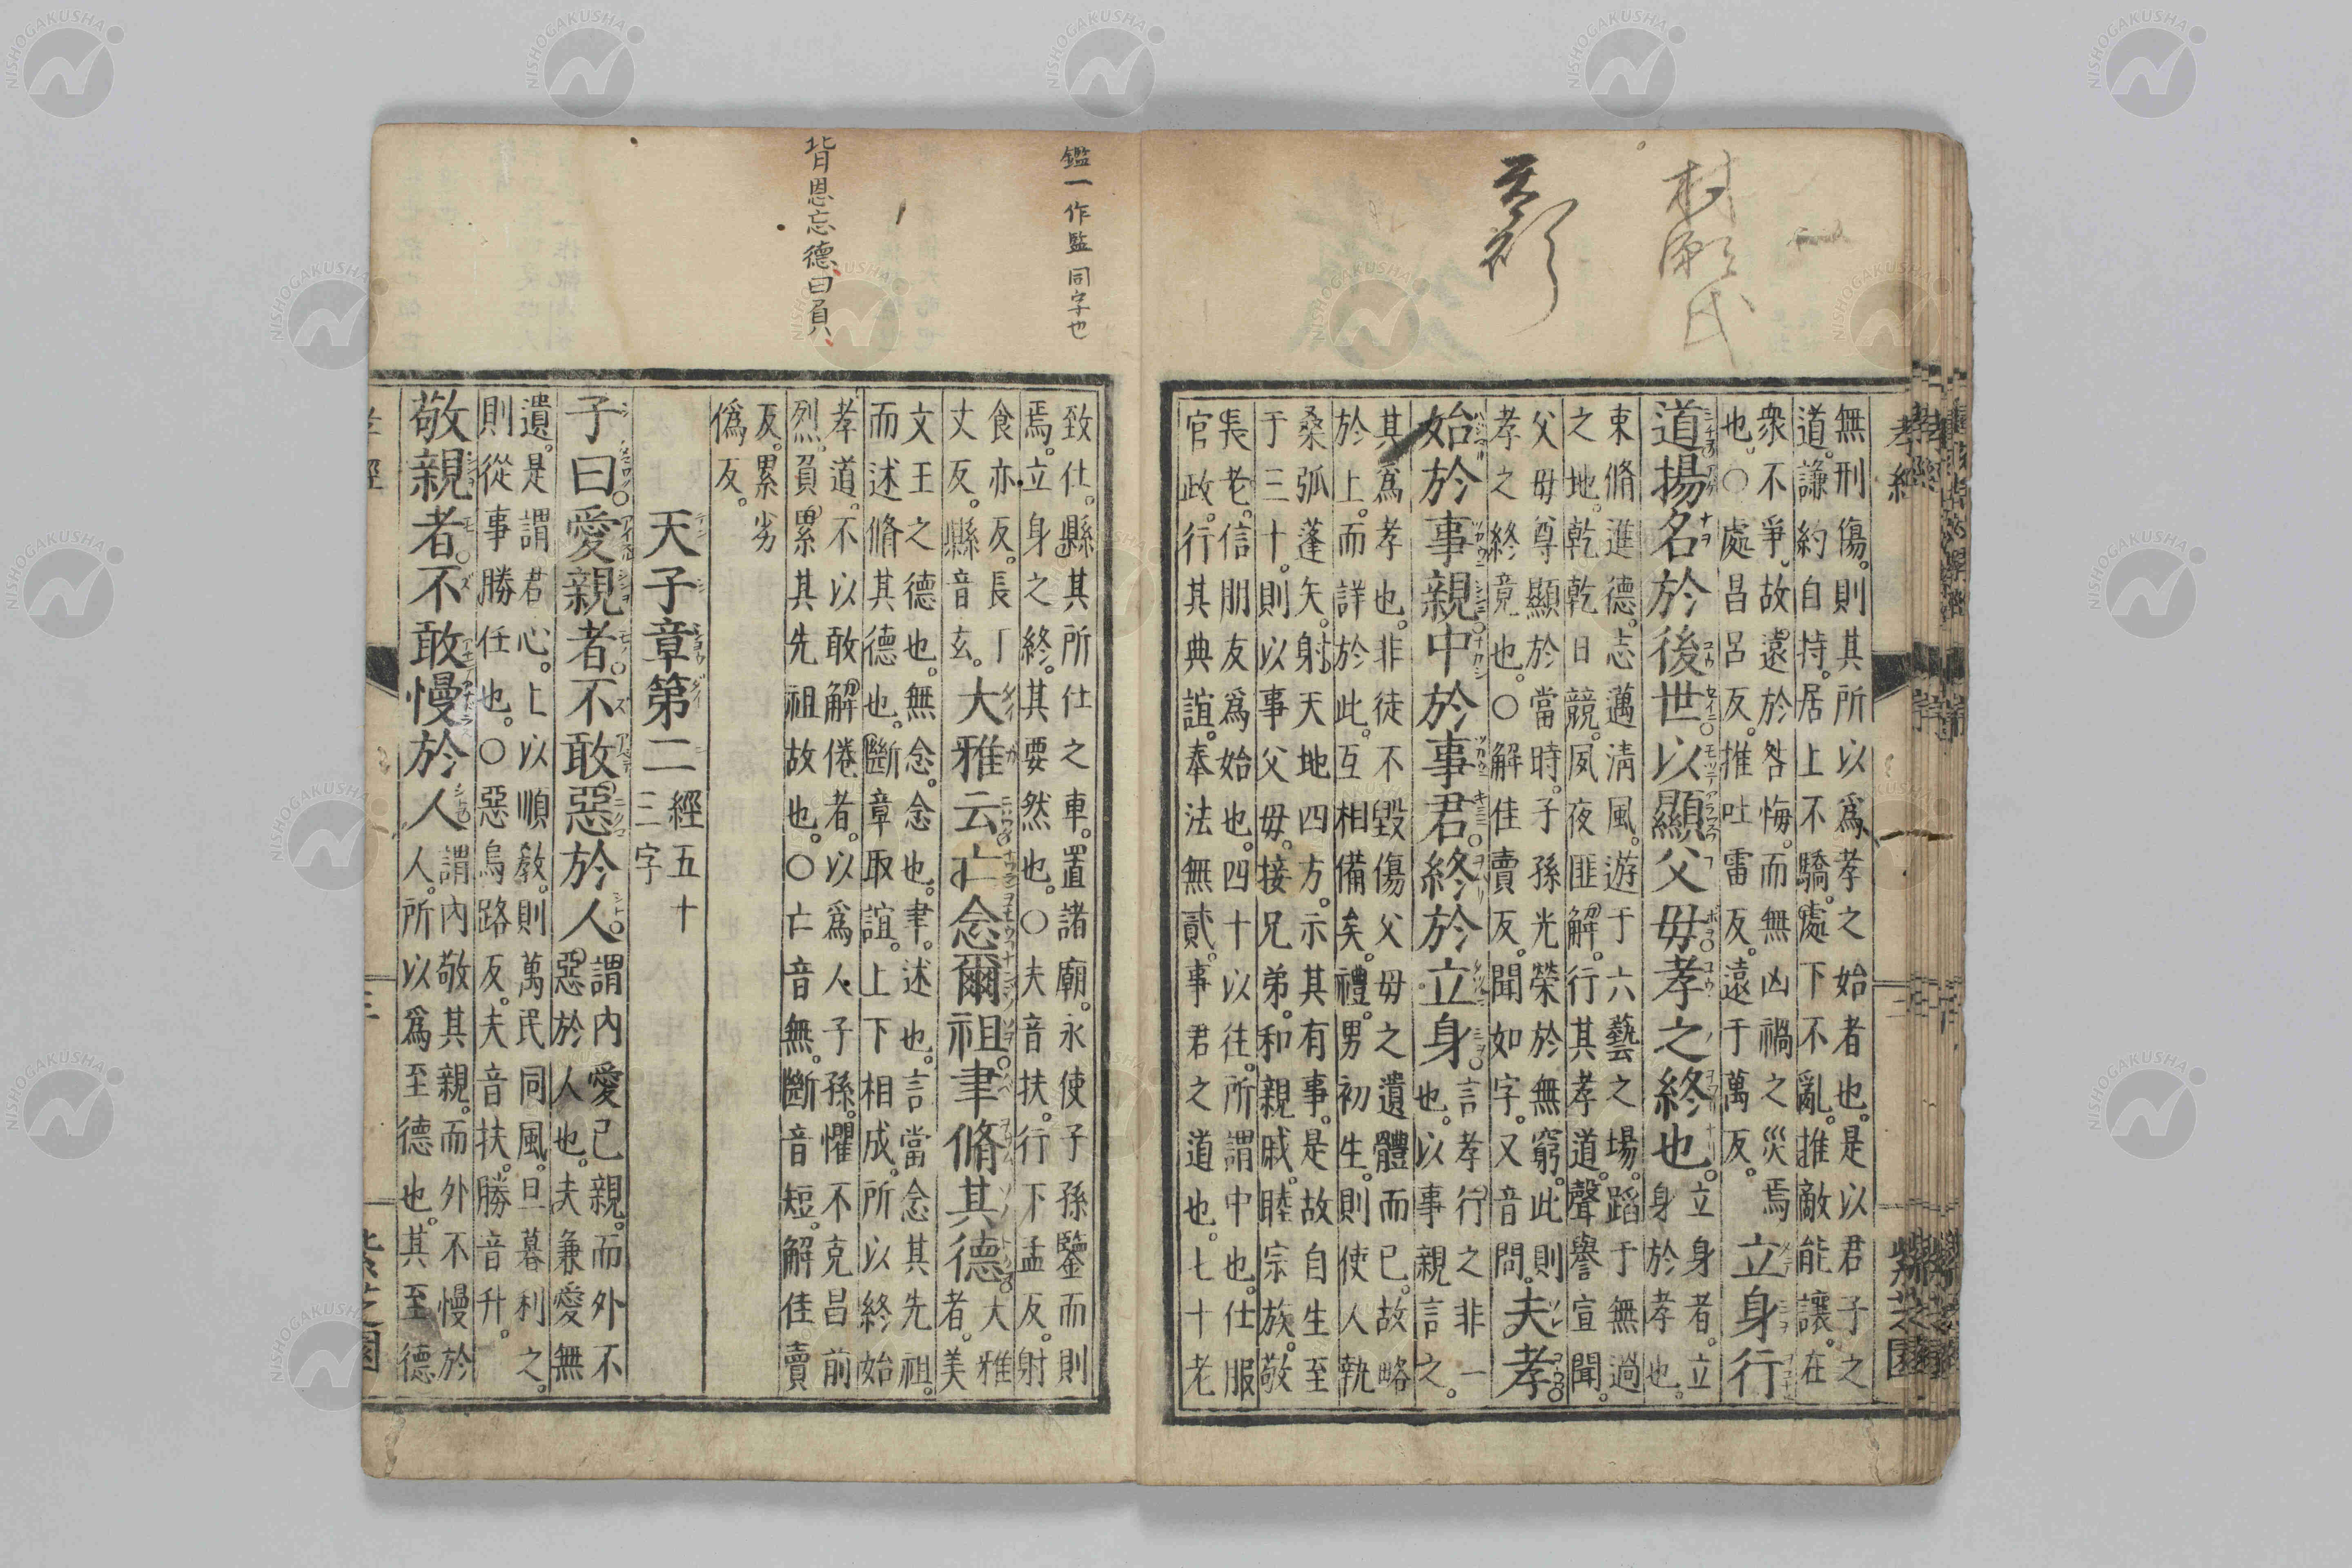 氏
孝經
紫芝園
無刑傷。則其所以爲孝之始者也。是以君子之
道。謙約自持。居上不驕。處下不亂。推敵能讓。在
衆不爭。故遠於咎悔。而無凶禍之災焉
也。〇處昌呂反。推吐雷反。遠于萬反。
立身行
道揚名於後世以顯父毋孝之終也。
立身者。立
身於孝也。
束脩進德。志邁清風。遊于六藝之場。蹈于無過
之地。乾乾日競。夙夜匪解。行其孝道。聲譽宣聞。
父毋尊顯於當時。子孫光榮於無窮。此則
孝之終竟也。〇解佳賣反。聞如字。又音問。
夫孝
始於事親中於事君終於立身
言孝行之非一
也。以事親言之。
其爲孝也。非徒不毀傷父毋之遺體而已。故略
於上。而詳於此。互相備矣。禮。男初生。則使人執
桑弧蓬矢。射天地四方。示其有事。是故自生至
于三十。則以事父毋。接兄弟。和親戚。睦宗族。敬
長老。信朋友爲始也。四十以往。所謂中也。仕服
官政。行其典誼。奉法無貳。事君之道也。七十老
鑑一作監同字也
背恩忘德曰負
致仕。縣其所仕之車。置諸廟。永使子孫鑒而則
焉。立身之終。其要然也。〇夫音扶。行下孟反。射
食亦反。長丁
丈反。縣音玄。
大雅云亡念爾祖聿脩其德
大雅
者。美
文王之德也。無念。念也。聿。述也。言當念其先祖。
而述脩其德也。斷章取誼。上下相成。所以終始
孝道。不以敢解倦者。以爲人子孫。懼不克昌前
烈。負累其先祖故也。〇亡音無。斷音短。解佳賣
反。累劣
僞反。
天子章第二
經五十
三字
子曰愛親者不敢惡於人
謂内愛己親。而外不
惡於人也。夫兼愛無
遺。是謂君心。上以順敎。則萬民同風。旦暮利之。
則從事勝任也。〇惡烏路反。夫音扶。勝音升。
敬親者。不敢慢於人
謂内敬其親。而外不慢於
人。所以爲至德也。其至德
NISHOGAKUSHA